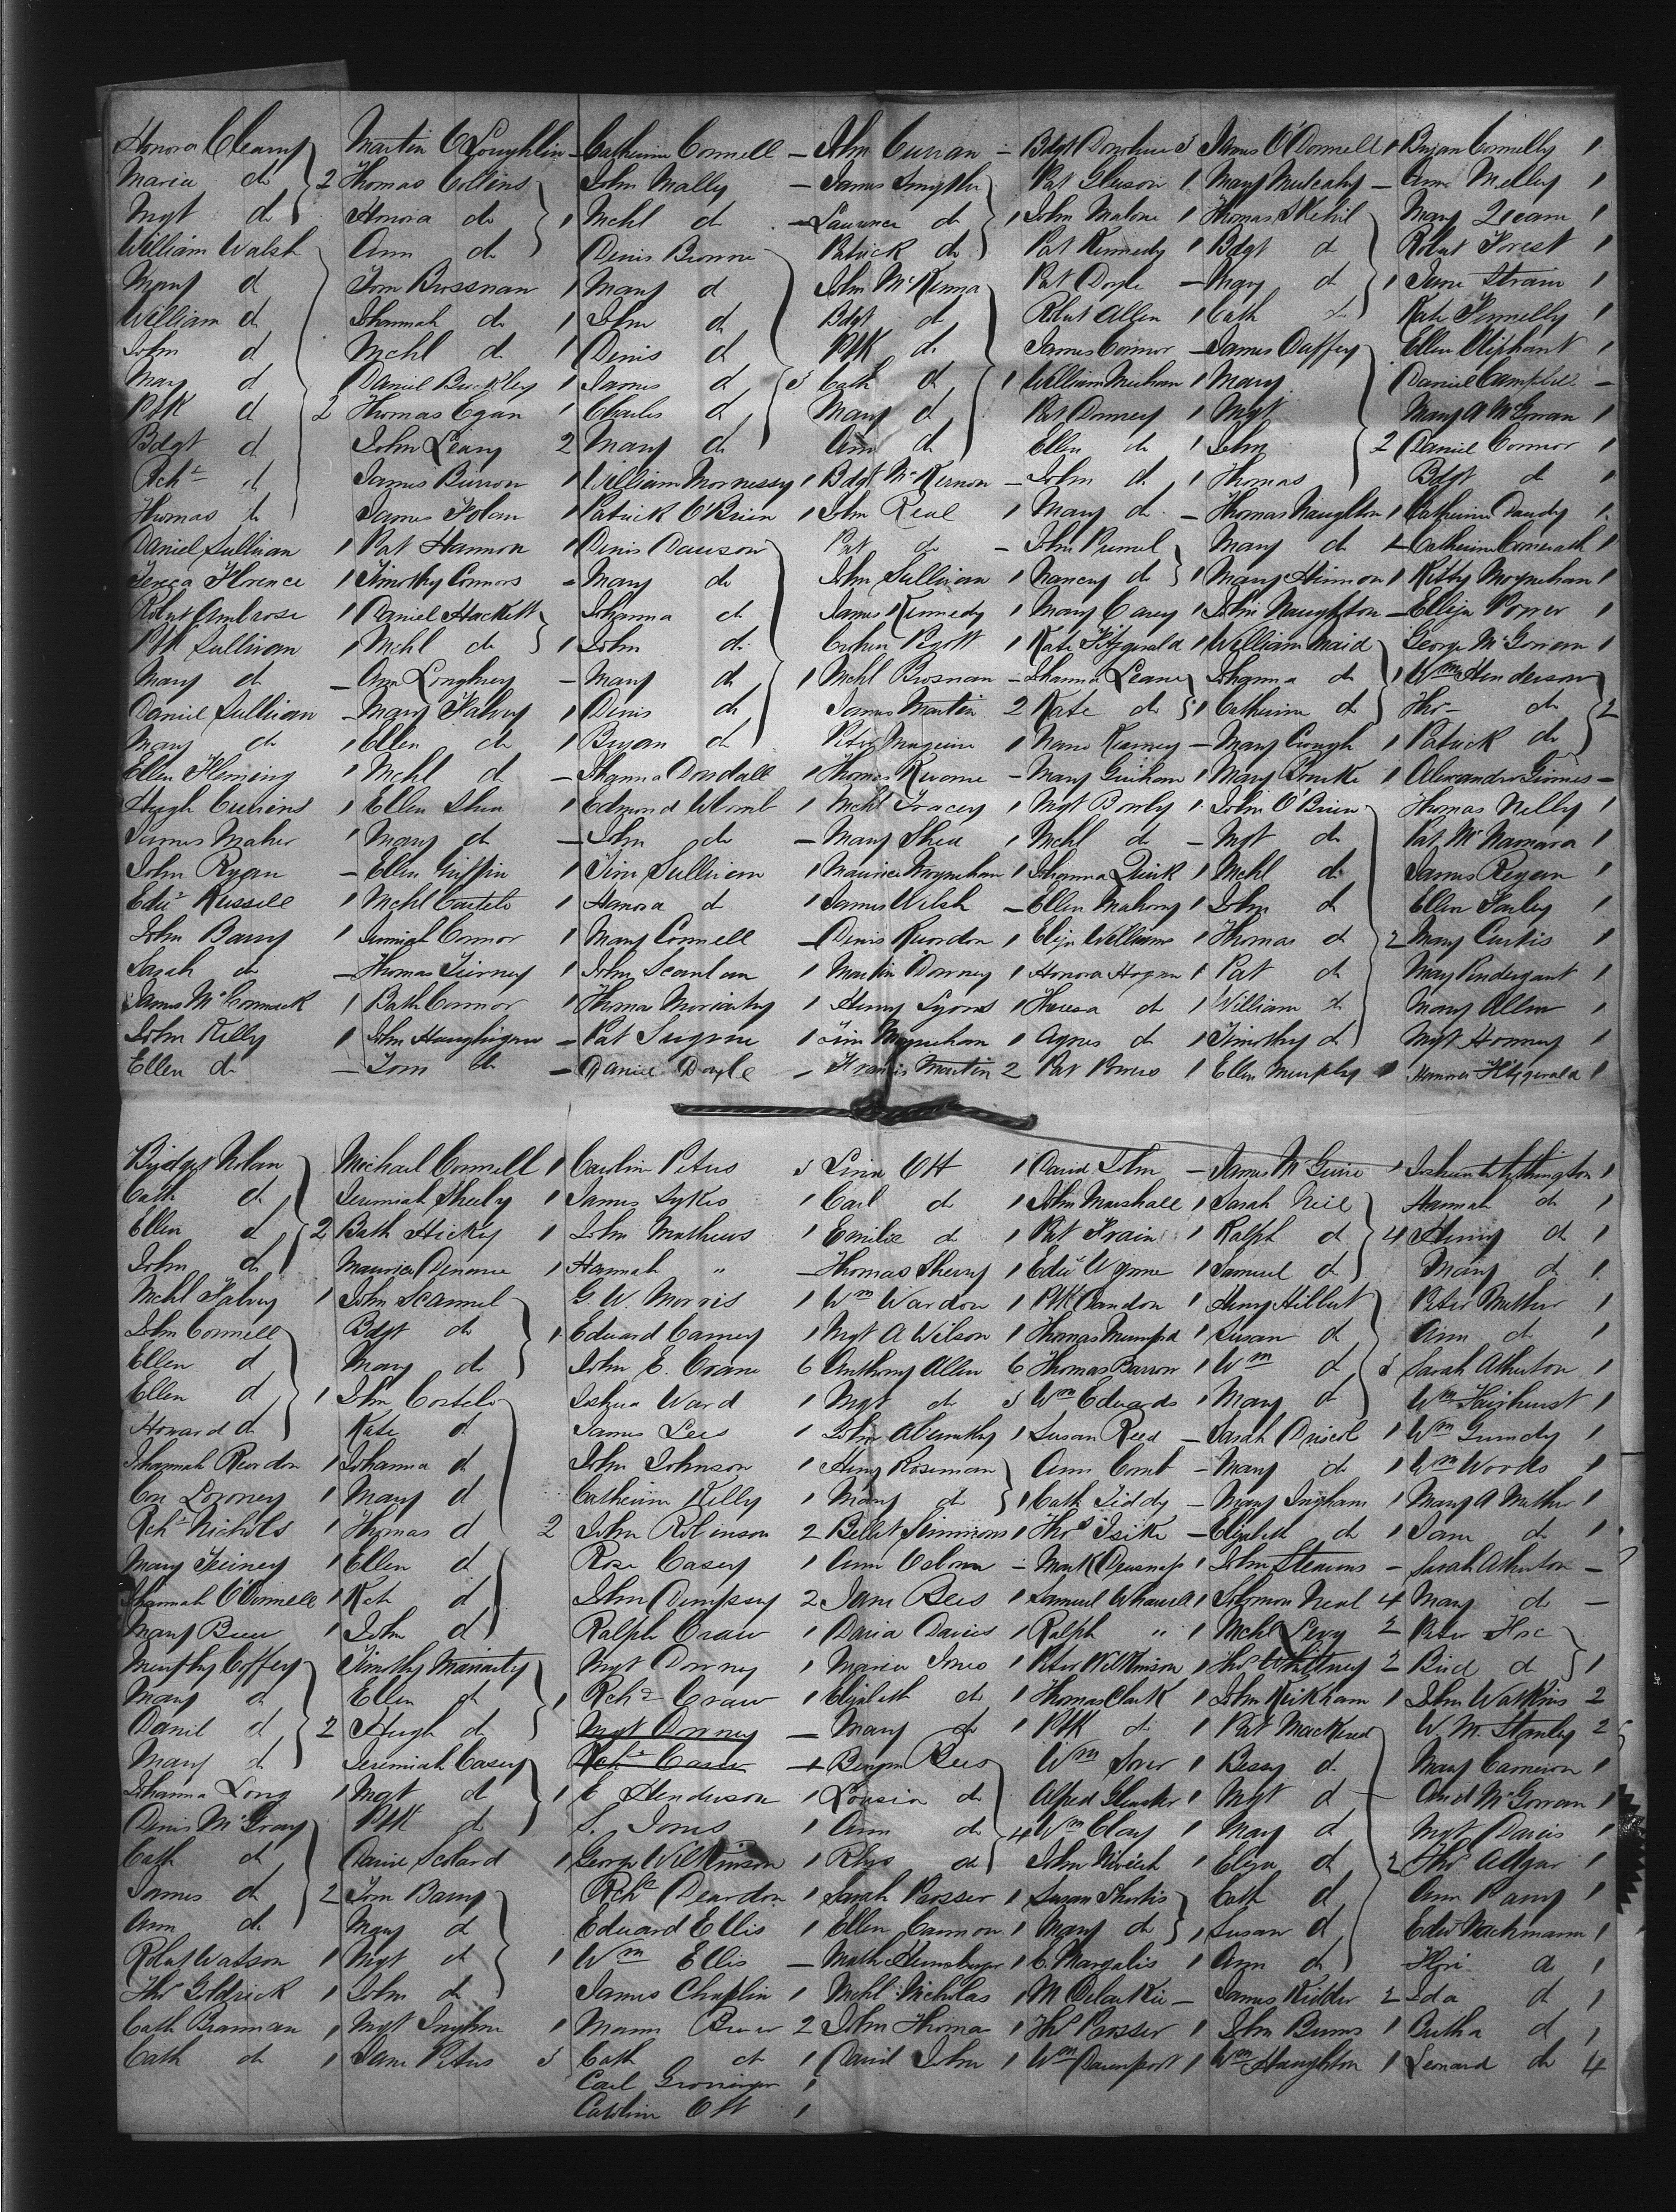 Honora Cleary
Maria do
Mgt do 2
William Walsh
Mary d
William d
John d
Mary d
Ptk d 2
Bdgt d
Rchd d
Thomas d
Daniel Sullivan 1
Teresa Florence 1
Robert Ambrose 1
Ptk Sullivan 1
Mary do –
Daniel Sullivan –
Mary do 1
Ellen Fleming 1
Hugh 1
James Maher 1
John Ryan –
Edwd Russell 1
John Barry 1
Sarah do –
James McCormack 1
John Kelly 1
Ellen do –
Martin O'Loughlin –
Thomas Collins
Honora do 1
Ann do
Tom Brossnan 1
Johannah do 1
Mchl do 1
Daniel Buckley 1
Thomas Egan 1
John Leary 2
James Burron 1
James Folan 1
Pat Hannon 1
Timothy Connors –
Daniel Hackett
Mchl do 1
Ann Loughrey –
Mary Falvey 1
Ellen do 1
Mchl do –
Ellen Shea 1
Mary do –
Ellen Griffin 1
Mchl Costelo 1
Jeremiah Connor 1
Thomas Tierney 1
Bath Connor 1
John –
Tom do –
Catherine Connell –
John Mally –
Mchl do –
Denis Browne
Mary d
John d
Denis d
James d 3
Charles d
Mary do
William Morrissey 1
Patrick O'Brien 1
Denis Dawson
Mary do
Johanna do
John do
Mary do 1
Denis do
Bryan do
Johanna Dondall 1
Edmond 1
John do –
Tim Sullivan 1
Hanora d 1
Mary Connell –
John Scanlan 1
Thomas Moriarty 1
Pat 1
Daniel Doyle –
John Curran –
James Smythe
Laurence do 1
Patrick do
John McKenna
Bdgt do
Ptk do
Cath do 1
Mary do
Ann do
Bdgt McKernon –
John Real 1
Pat do –
John Sullivan 1
James Kennedy 1
1
Mchl Brosnan –
James Martin 2
Peter Maguire 1
Thomas Kirwane –
Mchl Tracey 1
Mary Shea 1
Maurice Moynehan 1
James Welsh –
Denis Riordon 1
Martin Downey 1
Henry Lyons 1
Tim Moynehan 1
Francis Martin 2
Bdgt Donohue 3
Pat Gleeson 1
John Malone 1
Pat Kennedy 1
Pat Doyle –
Robert Allen 1
James Connor –
William Meehan 1
Pat Downey 1
Ellen do 1
John do 1
Mary do –
John Purnel
Nancy do 1
Mary Carey 1
Kate Fitzgerald 1
Johanna Leane
Kate do 1
Nano Kearney –
Mary Guiham 1
Mgt Bowly 1
Mchl do –
Johanna Quirk 1
Ellen Mahony 1
Eliza Williams 1
Honora Hogan 1
Theresa do 1
Agnes do 1
Pat Powers 1
James O'Donnell 1
Mary Mulcahy –
Thomas Skehil
Bdgt d
Mary d 1
Cath d
James Duffey
Mary
Mgt
John 2
Thomas
Thomas Naughton 1
Mary do 1
Mary Hinnon 1
John Naughton –
William Maid
Johanna do 1
Catherine do
Mary Cough 1
Mary Rourke 1
John O'Brien
Mgt do
Mchl do
John d
Thomas d 2
Pat do
William do
Timothy do
Ellen Murphy 1
Bryan Connelly 1
Ann Melley 1
Mary 1
Robert Forest 1
Jane Strain 1
Kate Fennelly 1
Ellen Oliphant 1
Daniel Campbell –
Mary A McGowan 1
Daniel Connor 1
Bdgt do 1
Catherine Dandy 1
Catherine 1
Kitty Moynehan 1
Eliza Power 1
George McGowan 1
Wm Henderson
Thos do 2
Patrick do
Alexander –
Thomas Nelly 1
Pat McNamara 1
James Regan 1
Ellen Farley 1
Mary Curtis 1
May Pendergast 1
Mary Allen 1
Mgt 1
Honora Fitzgerald 1
Bridget Nolan
Cath do
Ellen d 2
John do
Mchl Falvey 1
John Connell
Ellen d
Ellen d 1
Howard d
Johannah Reardon 1
Con Looney 1
Rchd Nichols 1
Mary 1
Johannah O'Donnell 1
Mary 1
Murphy Coffey
Mary do
Daniel d 2
Mary d
Johanna Long 1
Denis McGray
Cath do
James do 2
Ann do
Robert Watson 1
Thos Goldrick 1
Cath Brannan 1
Cath do 1
Michael Connell 1
Jeremiah Sheehy 1
Bath Hickey 1
Maurice 1
John Scannel
Bdgt do 1
Mary do
John Costelo
Kate d
Johanna d
Mary d
Thomas d 2
Ellen d
Rch d
John d
Timothy Moriarity
Ellen do 1
Hugh do
Jeremiah Casey
Mgt d 1
Ptk do
Daniel Scolard 1
Tom Barry
Mary d
Mgt d 1
John do
Mgt Inghem 1
Jane Peters 3
Carolin Peters 3
James Sykes 1
John Mathews 1
Hannah " –
G. W. Morris 1
Edward Carney 1
John E. Crane 6
Joshua Ward 1
James Lees 1
John Johnson 1
Catherine Kelly 1
John Robinson 2
Rose Casey 1
John Dempsey 2
Ralph Craw 1
Mgt Downey 1
Rchd Craw 1
Mgt Downey –
E Henderson 1
S. Jones 1
George Wilkinson 1
Rchd Deardon 1
Edward Ellis 1
Wm Ellis –
James Chaplin 1
2
Cath do 1
Carl Groninger 1
Carolin Ott 1
Linn Ott 1
Carl do 1
Emilie do 1
Thomas Sherry 1
Wm Wardon 1
Mgt A Wilson 1
Anthony Allen 6
Mgt do 3
John Abernethy 1
Henry Roseman
Mary do 1
Simmons 1
Ann Osborn –
Jane Bees 1
David Davies 1
Maria Jones 1
Elizabeth do 1
Mary do 1
Benjm Rees
Louisia do
Ann do 4
Rhys do
Sarah Prosser 1
Ellen Cannon 1
Math 1
Mchl Nicholas 1
John Thomas 1
David John 1
David John –
John Marshall 1
Pat Frain 1
Edwd Wynne 1
Ptk Candon 1
Thomas Mumford 1
Thomas Barron 1
Wm Edwards 1
Susan Reed –
Ann Comb –
Cath Tiddy –
Thos –
Mark 1
Samuel 1
Ralph " 1
Peter Wilkinson 1
Thomas Clark 1
Ptk do 1
Wm 1
Alfred 1
Wm Clay 1
John 1
Susan
Mary do 1
C. Margalis 1
M –
Thos Prosser 1
Wm Davenport 1
James McGuire 1
Sarah Neil
Ralph d 4
Samuel d
Henry Hilbert
Susan d
Wm d 3
Mary d
Sarah Driscol 1
Mary do 1
Mary Ingham 1
Elizabeth do 1
John Stearns –
Solomon Neal 4
Mchl Levy 2
Thos Whittney 2
John Kirkham 1
Pat
Bessy d
Mgt d
Mary d
Eliza d 2
Cath d
Susan d
Ann d
James Kidder 2
John Burns 1
Wm Haughton 1
1
Hannah do 1
Henry d 1
Mary d 1
Peter Mather 1
Ann do 1
Sarah Atherton 1
Wm Fairhurst 1
Wm Grundy 1
Wm Woods 1
Mary A Mather 1
Jane do 1
Sarah Atherton –
Mary do –
Peter
Bird d 1
John Watkins 2
W. M. Stanley 2
Mary Cameron 1
And McGowan 1
Mgt Davis 1
Thos Adgar 1
Ann Parry 1
Edwd Nachmann 1
d 1
Ida d 1
Bertha d 1
Leonard do 4